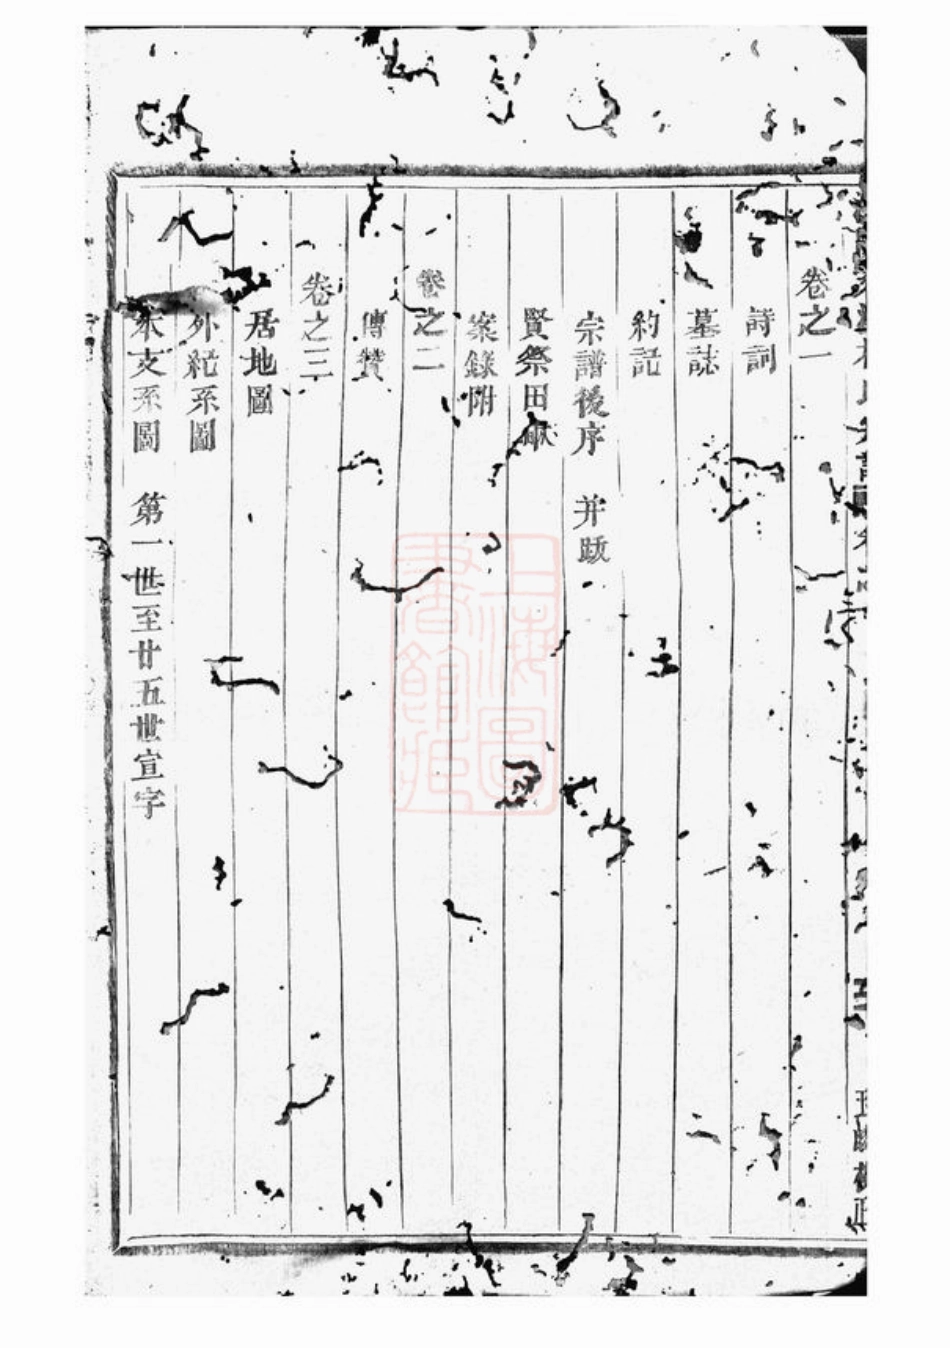 卷之一
詩詞
墓誌
約記
宗譜後序 并跋
賢祭田畝
案錄附
卷之二
傳贊
卷之三
居地圖
外紀系圖
本支系圖 第一世至廿五世宣字
上海圖書館藏